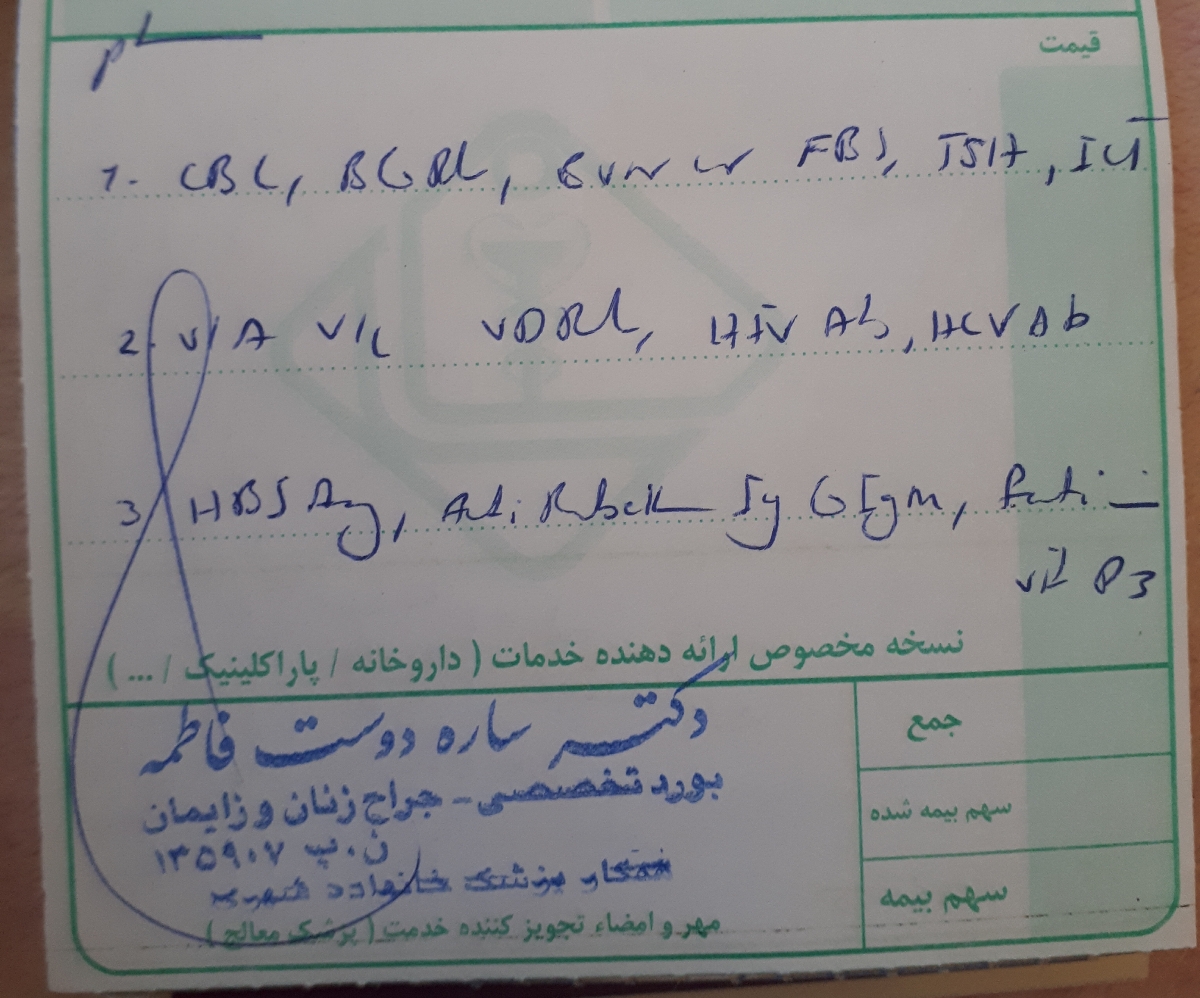 قیمت
1- CBC, BGRh, BUN Cr FBS, TSH, ICT
2- U/A U/C VDRL, HIV Ab, HCV Ab
3 HBSAg, Anti Rubella IgG IgM, Ferritin
vit D3
نسخه مخصوص ارائه دهنده خدمات ( داروخانه / پاراکلینیک / ... )
دکتر ساره دوست فاطمه
بورد تخصصی - جراح زنان و زایمان
ن.پ ۱۳۵۹۰۷
همکار پزشک خانواده شهری
مهر و امضاء تجویز کننده خدمت ( پزشک معالج )
جمع
سهم بیمه شده
سهم بیمه